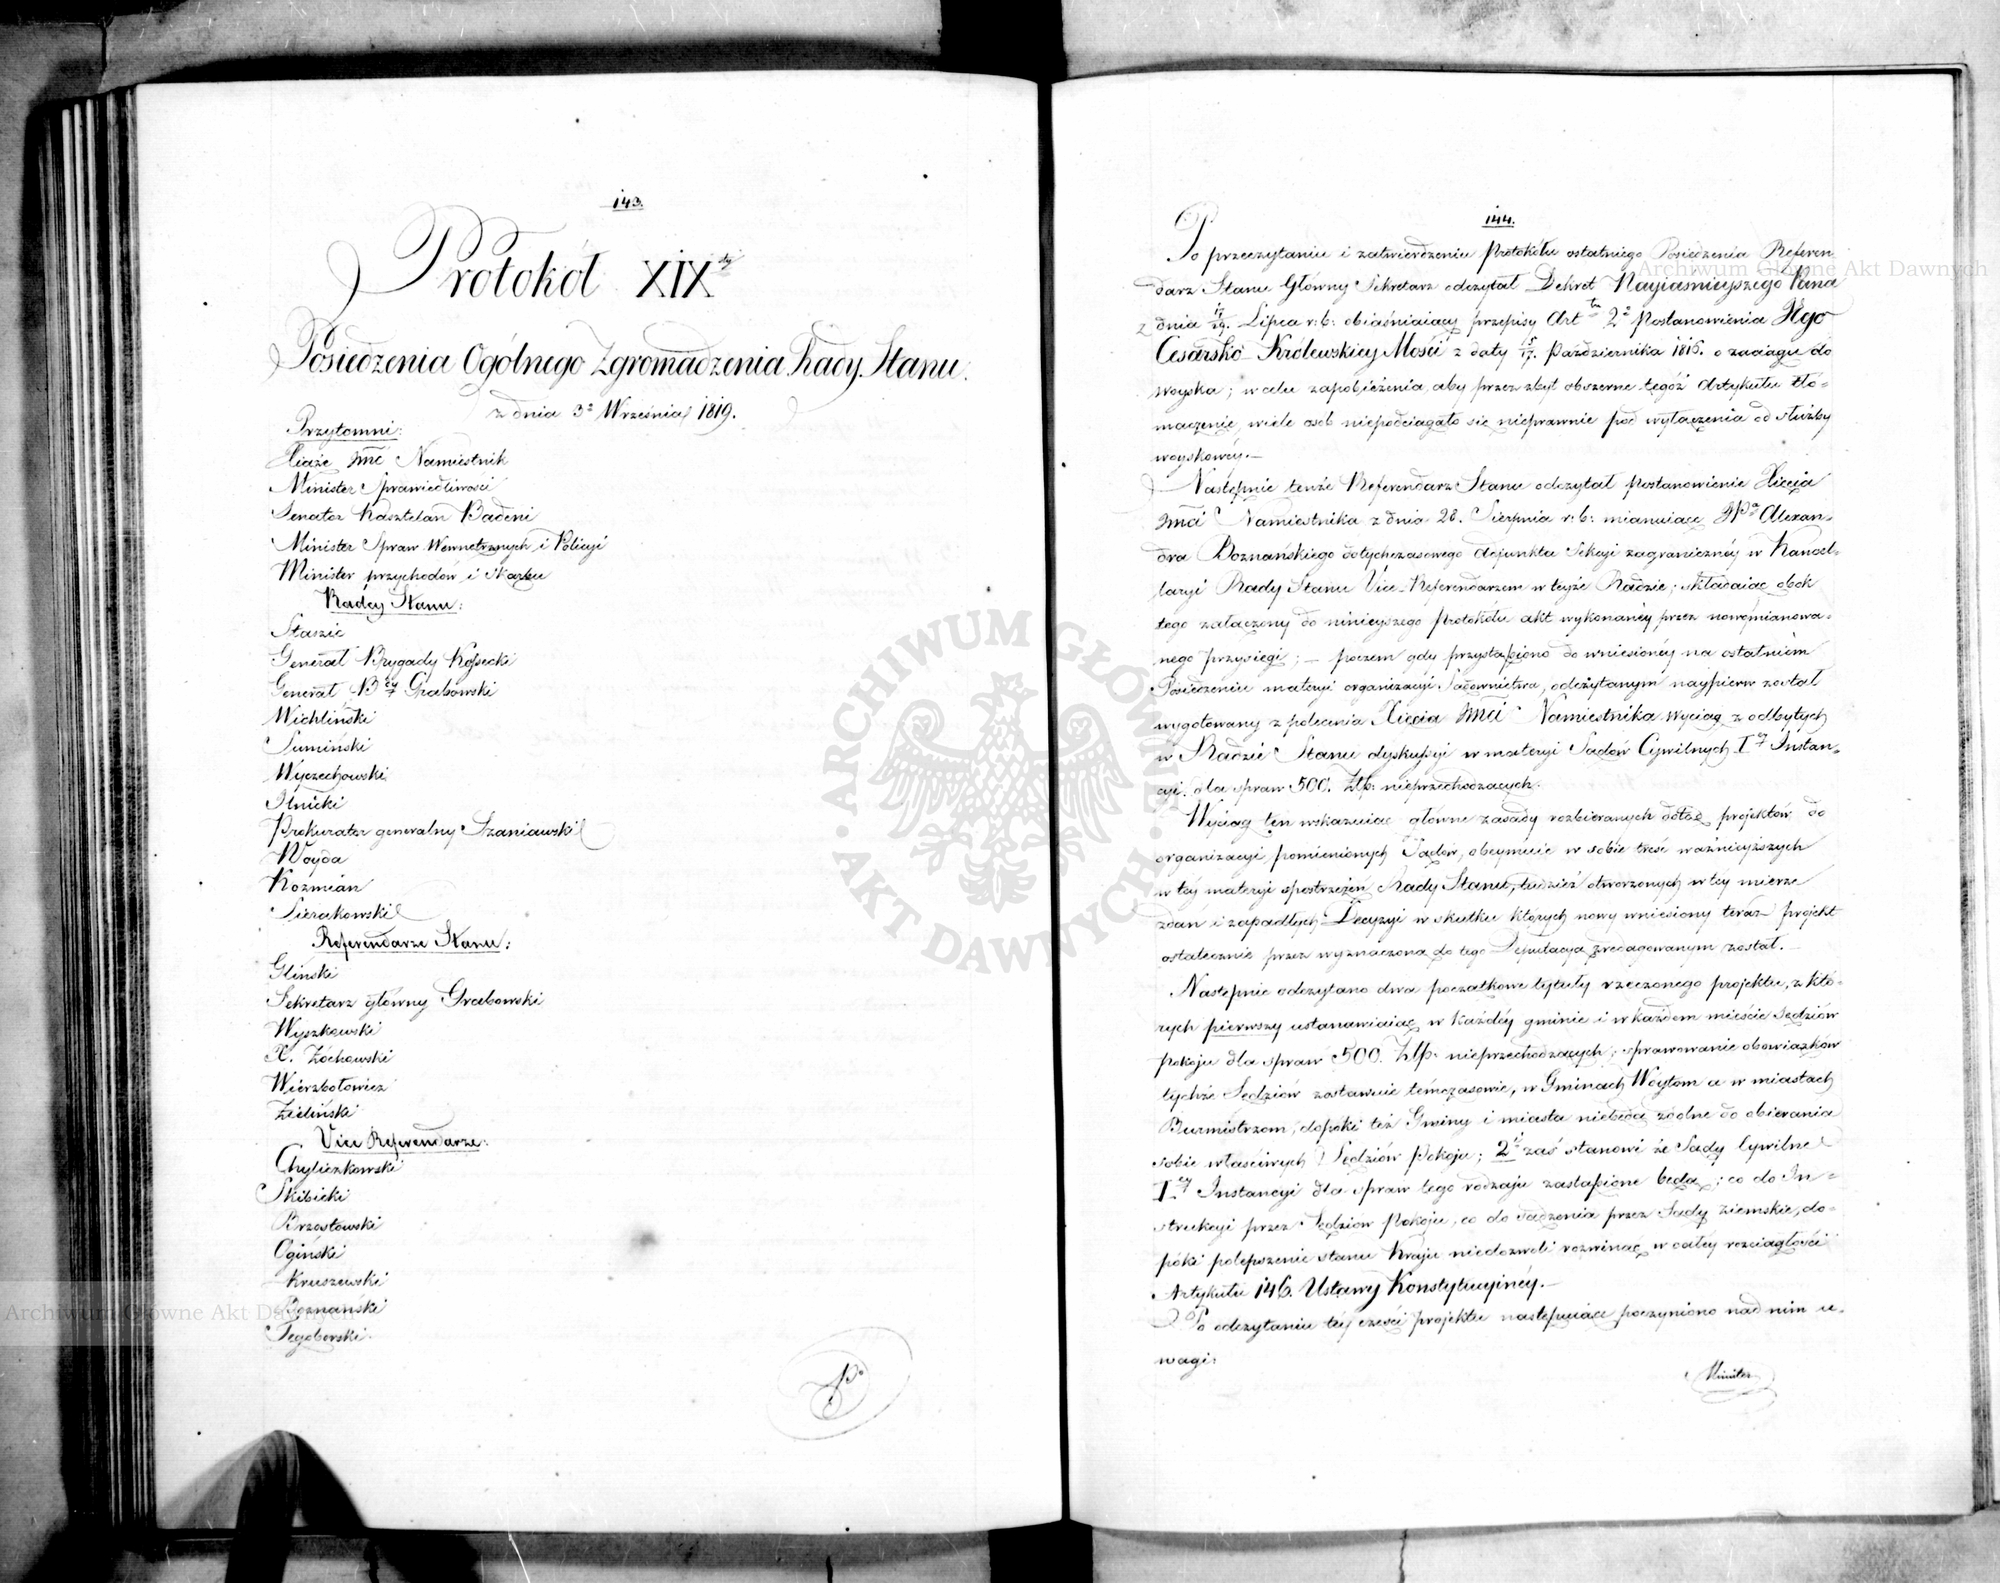 143.
Protokół XIXsty
Posiedzenia Ogólnego Zgromadzenia Rady Stanu.
z dnia 3o Września 1819.
Przytomni:
Xiąże Jmć Namiestnik
Minister Sprawiedliwości
Senator Kasztelan Badeni
Minister Spraw Wewnętrznych i Policyi
Minister przychodów i skarbu
Radcy Stanu:
Staszic
Generał Brygady Kossecki
Generał Bdy Grabowski
Wichliński
Sumiński
Wyczechowski
Ilnicki
Prokurator generalny Szaniawski
Woyda
Kozmian
Sierakowski
Referendarze Stanu:
Gliński
Sekretarz główny Grabowski
Wyszkowski
X. Żochowski
Wierzbołowicz
Zieliński
Vice Referendarze:
Chyliczkowski
Skibicki
Brzostowski
Ogiński
Kruszewski
Poznański
Tęgoborski
Po
144.
Po przeczytaniu i zatwierdzeniu Protokółu ostatniego Posiedzenia Referen-
darz Stanu Główny Sekretarz odczytał Dekret Nayiaśnieyszego Pana
z dnia 17/29. Lipca r: b: obiaśniaiący przepisy Artłu 2o Postanowienia Jego
Cesarsko Królewskiey Mości z daty 5/17. Października 1816. o zaciągu do
woyska; w celu zapobieżenia, aby przez zbyt obszerne tegóż Artykułu tło-
maczenie, wiele osob niepodciągało się nieprawnie pod wyłączenia od służby
woyskowéy.—
Następnie tenże Referendarz Stanu odczytał Postanowienie Xięcia
Jmci Namiestnika z dnia 28. Sierpnia r: b: mianuiące JPa Alexan-
dra Poznańskiego dotychczasowego Adjunkta Sekcyi zagranicznéy w Kancel-
laryi Rady Stanu Vice-Referendarzem w teyże Radzie; składaiąc obok
tego załączony do ninieyszego Protokółu akt wykonanéy przez nowomianowa-
nego przysięgi; — poczem gdy przystąpiono do wniesionéy na ostatniém
Posiedzeniu materyi organizacyi Sądownictwa, odczytanym naypierw został
wygotowany z polecenia Xięcia Jmci Namiestnika Wyciąg z odbytych
w Radzie Stanu dyskussyi w materyi Sądów Cywilnych Iey Instan-
cyi, dla spraw 500. Złp: nieprzechodzących.
Wyciąg ten wskazuiąc główne zasady rozbieranych dotąd projektów do
organizacyi pomienionych Sądów, obeymuie w sobie treść ważnieyszych
w téy materyi spostrzeżeń Rady Stanu, tudzież otworzonych w tey mierze
zdań i zapadłych Decyzyi w skutku których nowy wniesiony teraz projekt
ostatecznie przez wyznaczoną do tego Deputacyą zredagowanym został.—
Następnie odczytano dwa początkowe tytuły rzeczonego projektu, z któ-
rych pierwszy ustanawiaiąc w każdéy gminie i w każdem mieście Sędziów
Pokoju dla spraw 500. Złp: nieprzechodzących; sprawowanie obowiązków
tychże Sędziów zostawuie témczasowie, w Gminach Woytom a w miastach
Burmistrzom, dopóki téż Gminy i miasta niebędą zdolne do obierania
sobie właściwych Sędziów Pokoju; 2i zaś stanowi że Sądy Cywilne
Iey Instancyi dla spraw tego rodzaju zastąpione będą; co do In-
strukcyi przez Sędziow Pokoju, co do sądzenia przez Sądy ziemskie, do-
póki polepszenie stanu Kraju niedozwoli rozwinąć w całey rozciągłości
Artykułu 146. Ustawy Konstytucyjnéy.—
Po odczytaniu téy części projektu następuiące poczyniono nad nim u-
wagi:
Minister
Archiwum Główne Akt Dawnych
Archiwum Główne Akt Dawnych
ARCHIWUM GŁÓWNE · AKT DAWNYCH ·